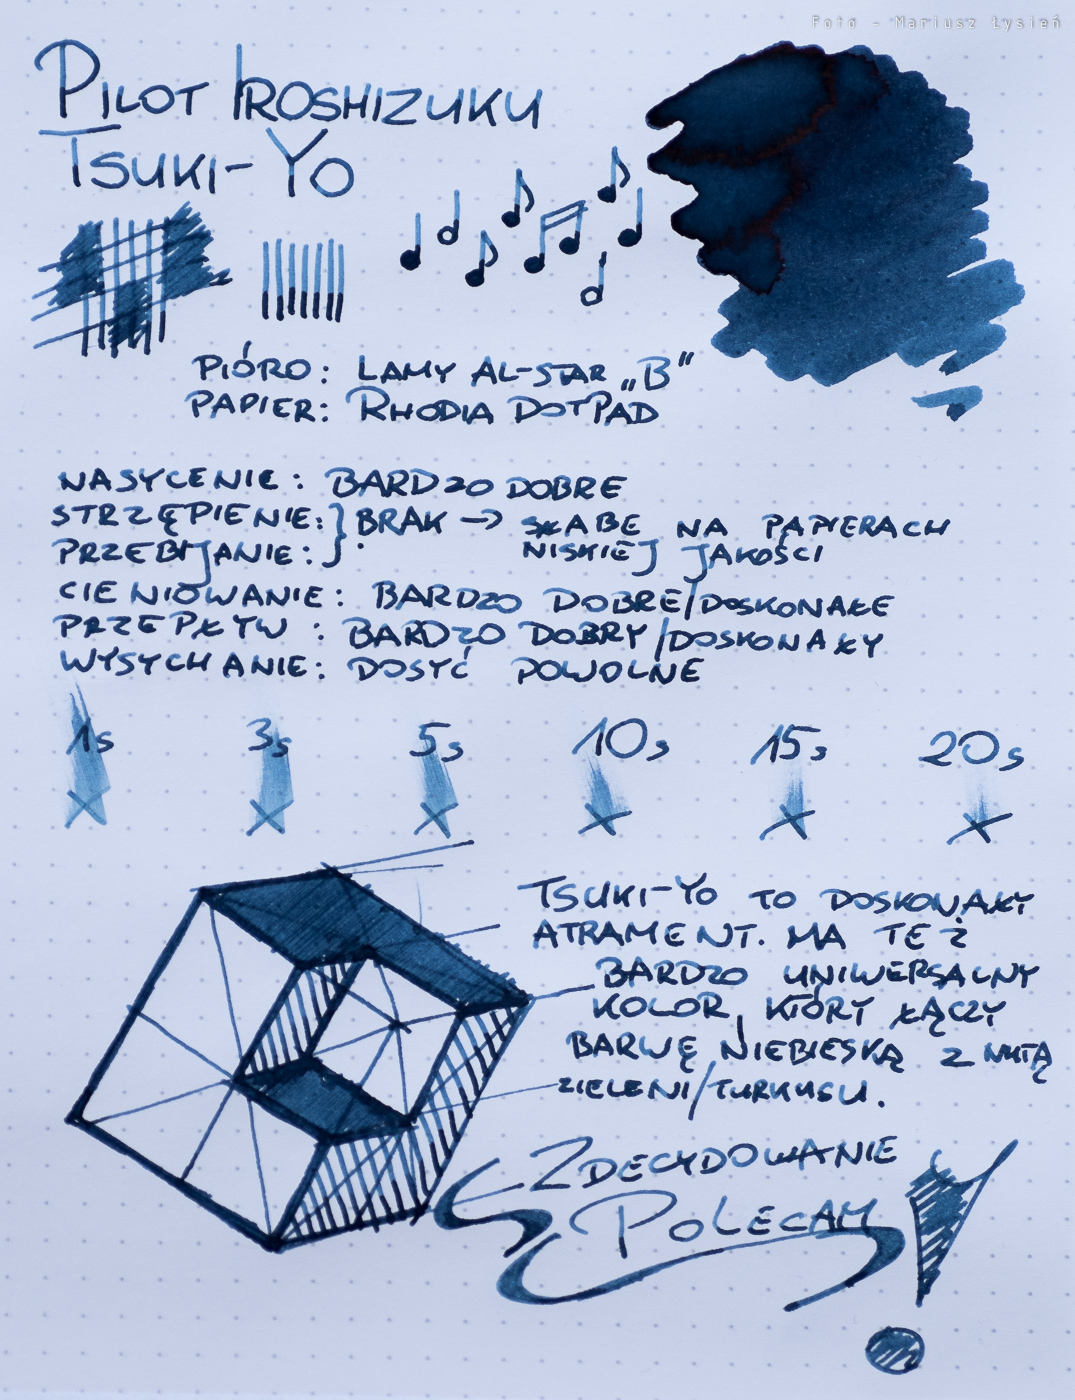 Foto - Mariusz Łysień
PILOT IROSHIZUKU
TSUKI-YO
PIÓRO: LAMY AL-STAR „B”
PAPIER: RHODIA DOTPAD
NASYCENIE: BARDZO DOBRE
STRZĘPIENIE: } BRAK → SŁABE NA PAPIERACH
PRZEBIJANIE: NISKIEJ JAKOŚCI
CIENIOWANIE: BARDZO DOBRE/DOSKONAŁE
PRZEPŁYW: BARDZO DOBRY/DOSKONAŁY
WYSYCHANIE: DOSYĆ POWOLNE
1s 3s 5s 10s 15s 20s
TSUKI-YO TO DOSKONAŁY
ATRAMENT. MA TEŻ
BARDZO UNIWERSALNY
KOLOR, KTÓRY ŁĄCZY
BARWĘ NIEBIESKĄ Z NUTĄ
ZIELENI/TURKUSU.
ZDECYDOWANIE
POLECAM!